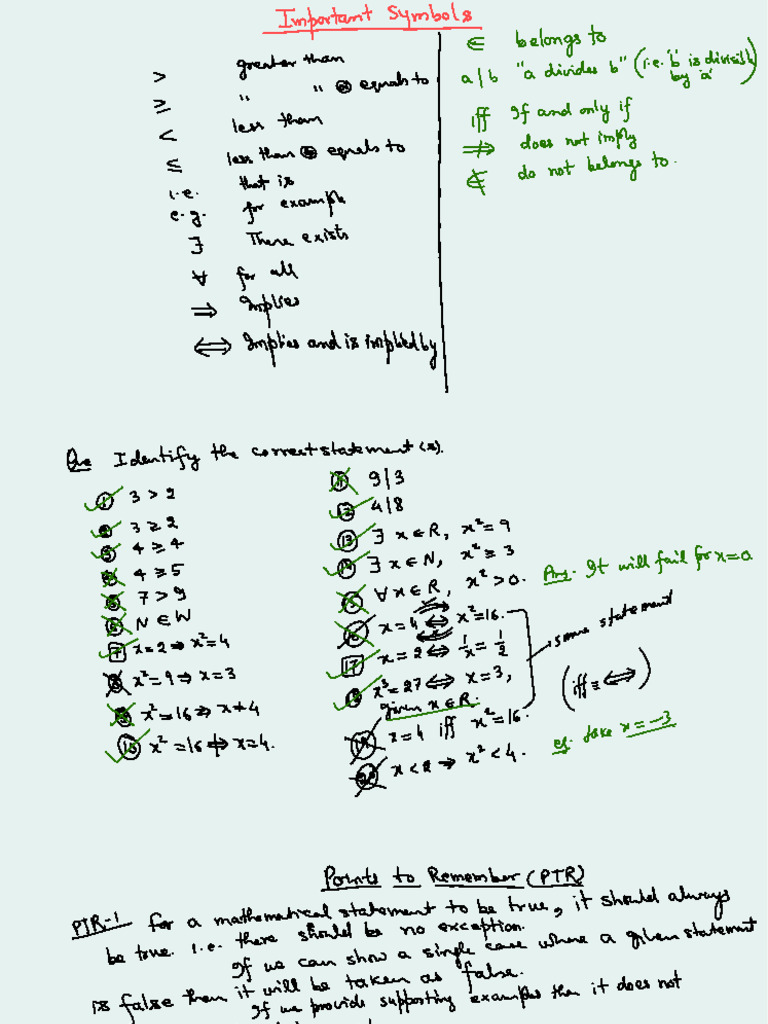 Important Symbols
> greater than
≥ " " or equals to
< less than
≤ less than or equals to
i.e. that is
e.g. for example
∃ There exists
∀ for all
⇒ Implies
⇔ Implies and is implied by
∈ belongs to
a|b "a divides b" (i.e. 'b' is divisible by 'a')
iff If and only if
⇏ does not imply
∉ do not belongs to.
Que Identify the correct statement(s).
① 3 > 2
② 3 ≥ 2
③ 4 ≥ 4
④ 4 ≥ 5
⑤ 7 > 9
⑥ N ∈ W
7 x = 2 ⇒ x² = 4
⑧ x² = 9 ⇒ x = 3
⑨ x² = 16 ⇒ x ≠ 4
⑩ x² = 16 ⇏ x = 4.
⑪ 9|3
⑫ 4|8
⑬ ∃ x ∈ R, x² = 9
⑭ ∃ x ∈ N, x² ≥ 3
⑮ ∀ x ∈ R, x² > 0. Ans. It will fail for x = 0
⑯ x = 4 ⇔ x² = 16.
17 x = 2 ⇔ 1/x = 1/2
⑱ x³ = 27 ⇔ x = 3,
given x ∈ R.
⑲ x = 4 iff x² = 16.
⑳ x < 2 ⇒ x² < 4. eg. take x = -3
same statement
(iff ≡ ⇔)
Points to Remember (PTR)
PTR-1 for a mathematical statement to be true, it should always
be true. i.e. there should be no exception.
If we can show a single case where a given statement
is false then it will be taken as false.
If we provide supporting examples then it does not